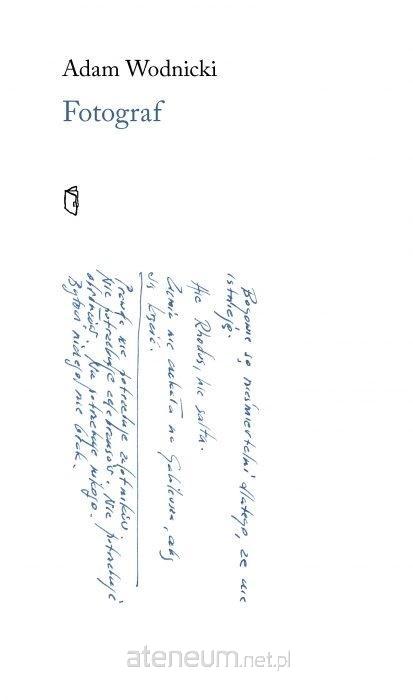 Adam Wodnicki
Fotograf
Bogowie są nieśmiertelni dlatego, że nie
istnieją.
Hic Rhodus, hic salta.
Ziemia nie czekała na Galileusza, aby
się kręcić.
Prawda nie potrzebuje zalotników.
Nie potrzebuje celebransów. Nie potrzebuje
obrońców. Nie potrzebuje nikogo.
Bytowi niczego nie brak.
ateneum.net.pl